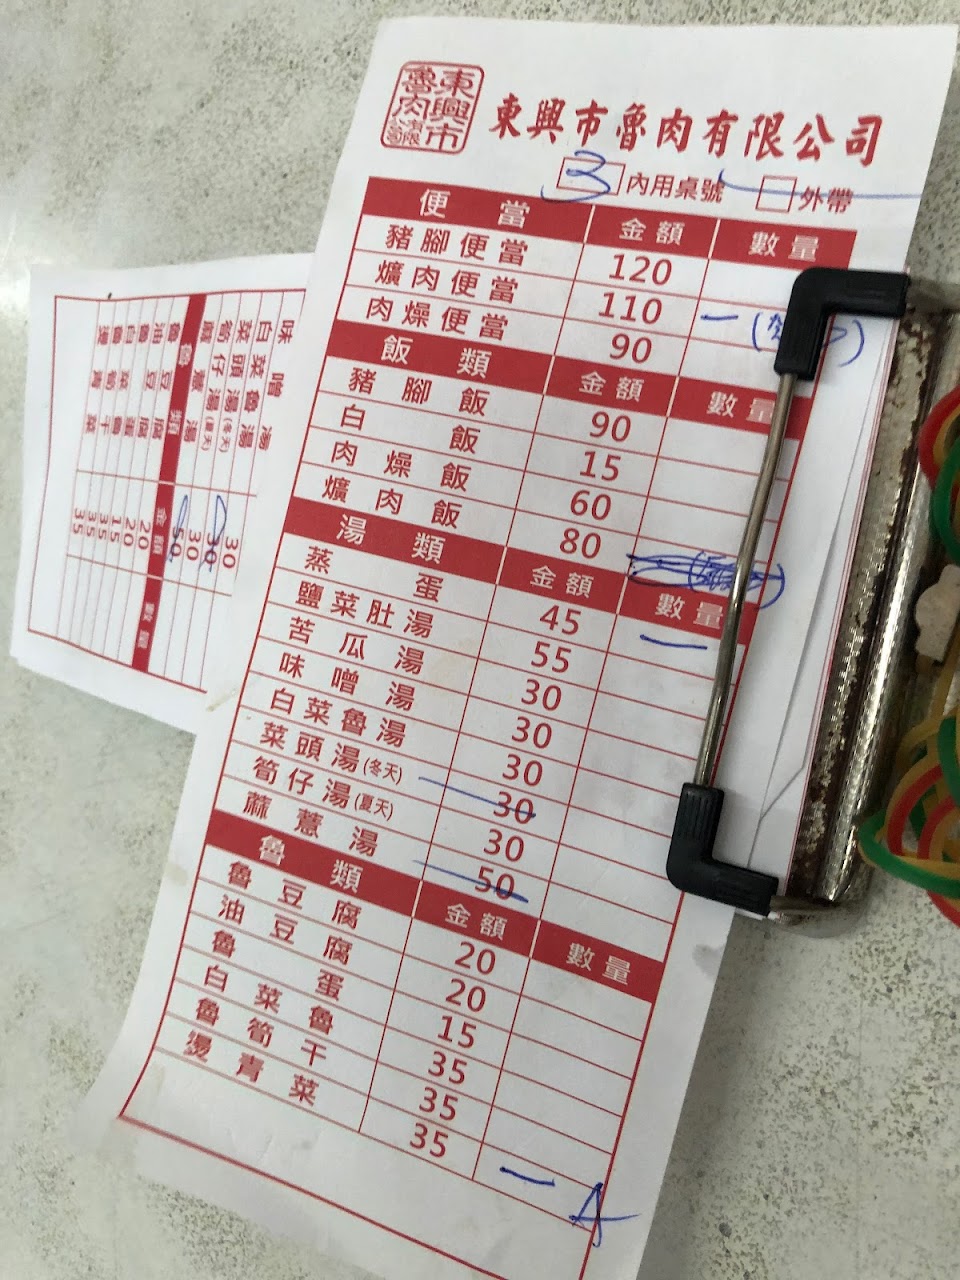 東興市魯肉有限公司
東興市魯肉有限公司
3 內用桌號 外帶
便當 金額 數量
豬腳便當 120
爌肉便當 110 一
肉燥便當 90
飯類 金額 數量
豬腳飯 90
白飯 15
肉燥飯 60
爌肉飯 80
湯類 金額 數量
蒸蛋 45 一
鹽菜肚湯 55
苦瓜湯 30
味噌湯 30
白菜魯湯 30
菜頭湯(冬天) 30
筍仔湯(夏天) 30
蔴薏湯 50
魯類 金額 數量
魯豆腐 20
油豆腐 20
魯蛋 15
白菜魯 35
魯筍干 35
燙青菜 35 一
A
味噌湯
白菜魯湯 30
菜頭湯(冬天) 30
筍仔湯(夏天) 30
蔴薏湯 50
魯類 金額 數量
魯豆腐 20
油豆腐 20
魯蛋 15
白菜魯 35
魯筍干 35
燙青菜 35